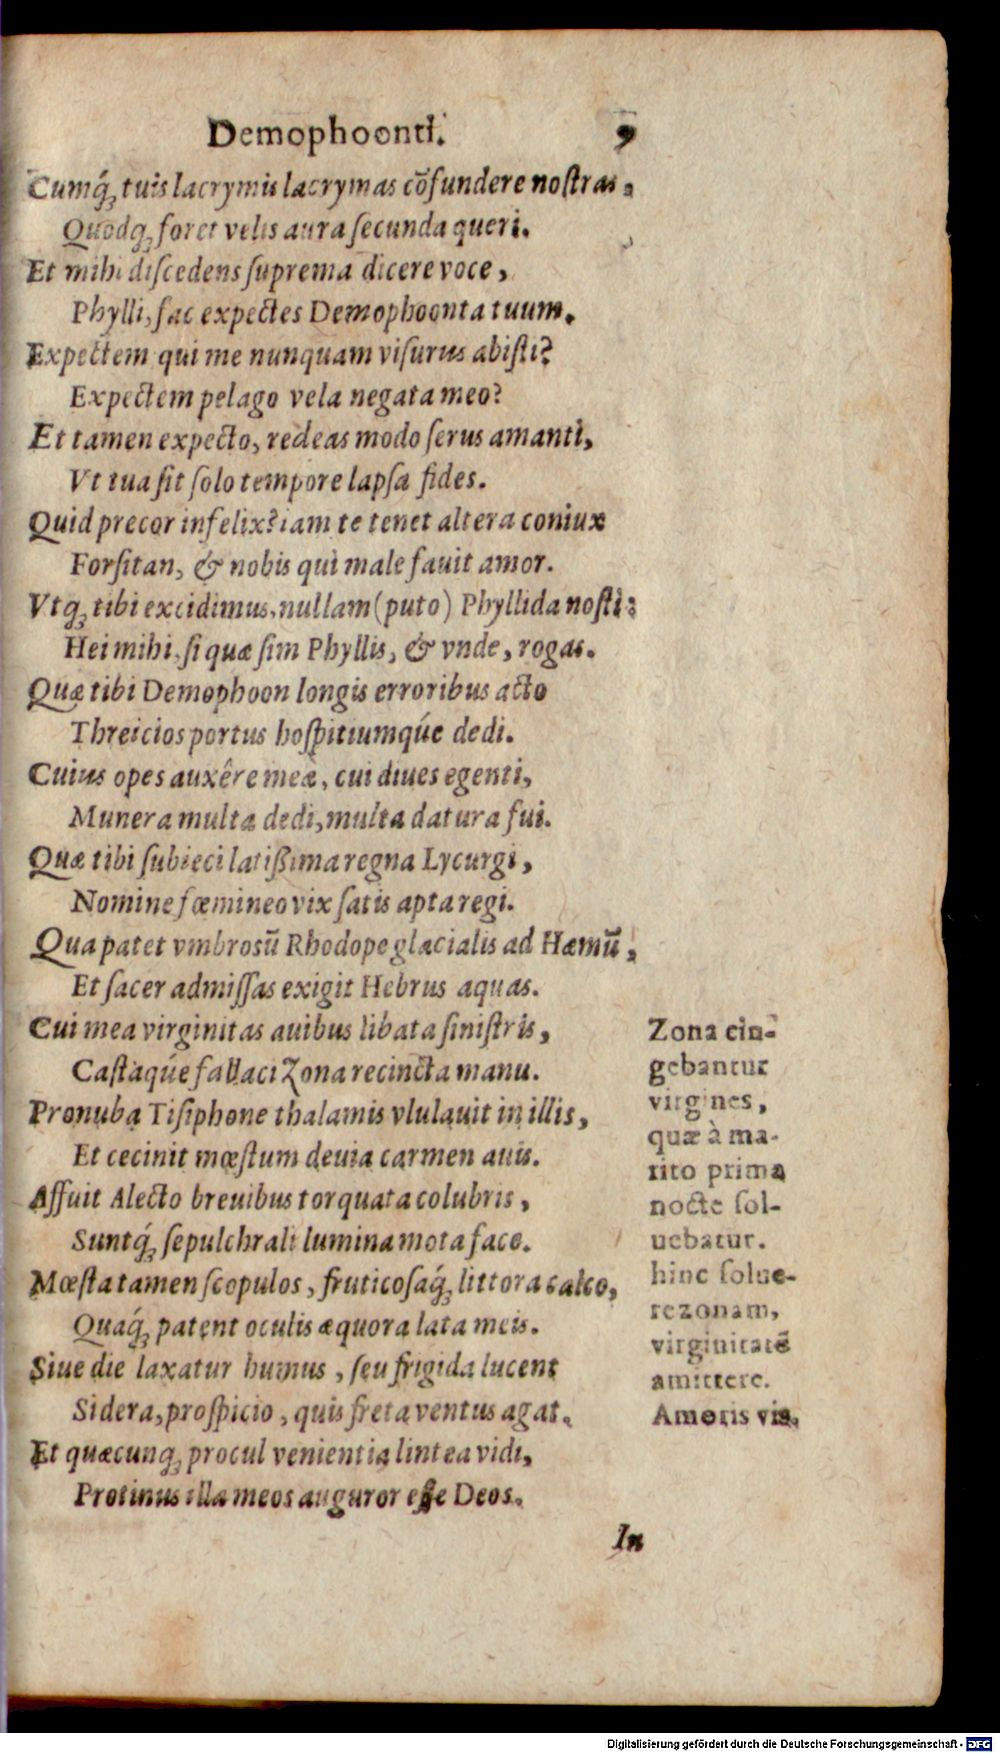 Demophoonti. 9
Cumq́ꝫ tuis lacrymis lacrymas cõfundere nostras,
Quodqꝫ foret velis aura secunda queri.
Et mihi discedens suprema dicere voce,
Phylli, fac expectes Demophoonta tuum.
Expectem qui me nunquam visurus abisti?
Expectem pelago vela negata meo?
Et tamen expecto, redeas modo serus amanti,
Vt tua sit solo tempore lapsa fides.
Quid precor infelix? iam te tenet altera coniux
Forsitan, & nobis qui male fauit amor.
Vtqꝫ tibi excidimus, nullam (puto) Phyllida nosti:
Hei mihi, si quæ sim Phyllis, & vnde, rogas.
Quæ tibi Demophoon longis erroribus acto
Threicios portus hospitiumq́ue dedi.
Cuius opes auxêre meæ, cui diues egenti,
Munera multa dedi, multa datura fui.
Quæ tibi subieci latißima regna Lycurgi,
Nomine fœmineo vix satis apta regi.
Qua patet vmbrosũ Rhodope glacialis ad Hæmũ,
Et sacer admissas exigit Hebrus aquas.
Cui mea virginitas auibus libata sinistris,
Castaq́ue fallaci Zona recincta manu.
Pronuba Tisiphone thalamis vlulauit in illis,
Et cecinit mœstum deuia carmen auis.
Affuit Alecto breuibus torquata colubris,
Suntq́ꝫ sepulchrali lumina mota face.
Mœsta tamen scopulos, fruticosaq́ꝫ littora calco,
Quaq́ꝫ patent oculis æquora lata meis.
Siue die laxatur humus, seu frigida lucent
Sidera, prospicio, quis freta ventus agat.
Et quæcunqꝫ procul venientia lintea vidi,
Protinus illa meos auguror esse Deos.
In
Zona cin-
gebantur
virgines,
quæ à ma-
rito prima
nocte sol-
uebatur.
hinc solue-
re zonam,
virginitatẽ
amittere.
Amoris vis.
Digitalisierung gefördert durch die Deutsche Forschungsgemeinschaft - DFG